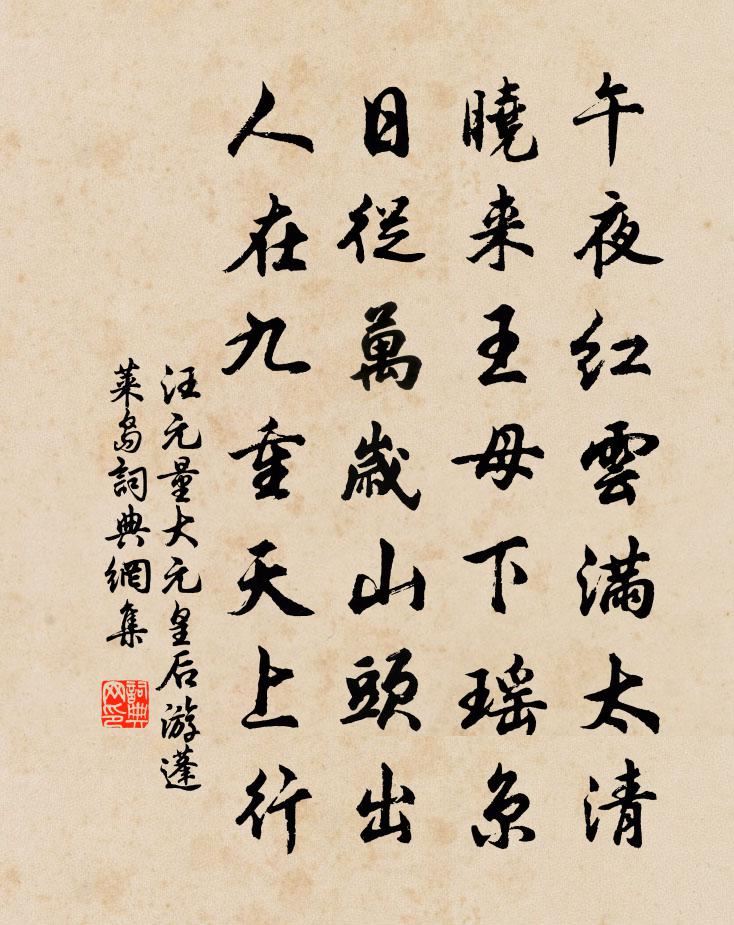 午夜红雲满太清
曉来王母下瑶京
日從萬歲山頭出
人在九重天上行
汪元量大元皇后游蓬
莱島詞典網集
詞典
网印